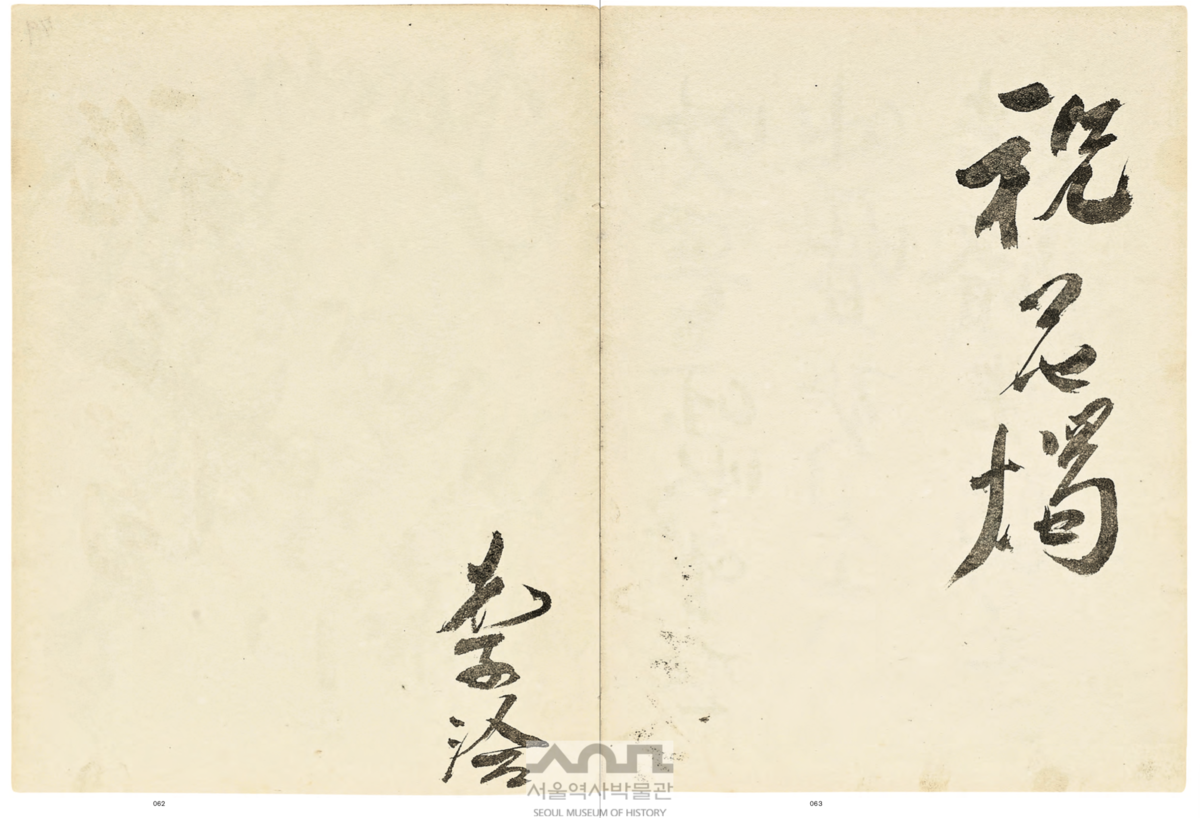 祝花燭
李洽
서울역사박물관
SEOUL MUSEUM OF HISTORY
062
063